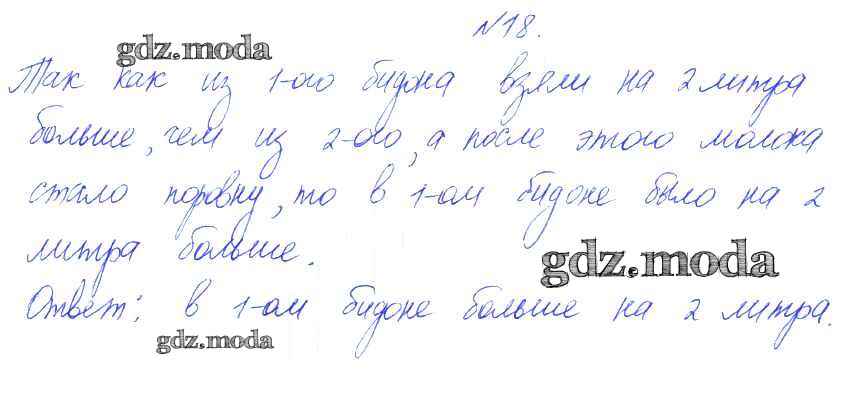 №18.
gdz.moda
Так как из 1-ого бидона взяли на 2 литра
больше, чем из 2-ого, а после этого молока
стало поровну, то в 1-ом бидоне было на 2
литра больше.
gdz.moda
Ответ: в 1-ом бидоне больше на 2 литра.
gdz.moda